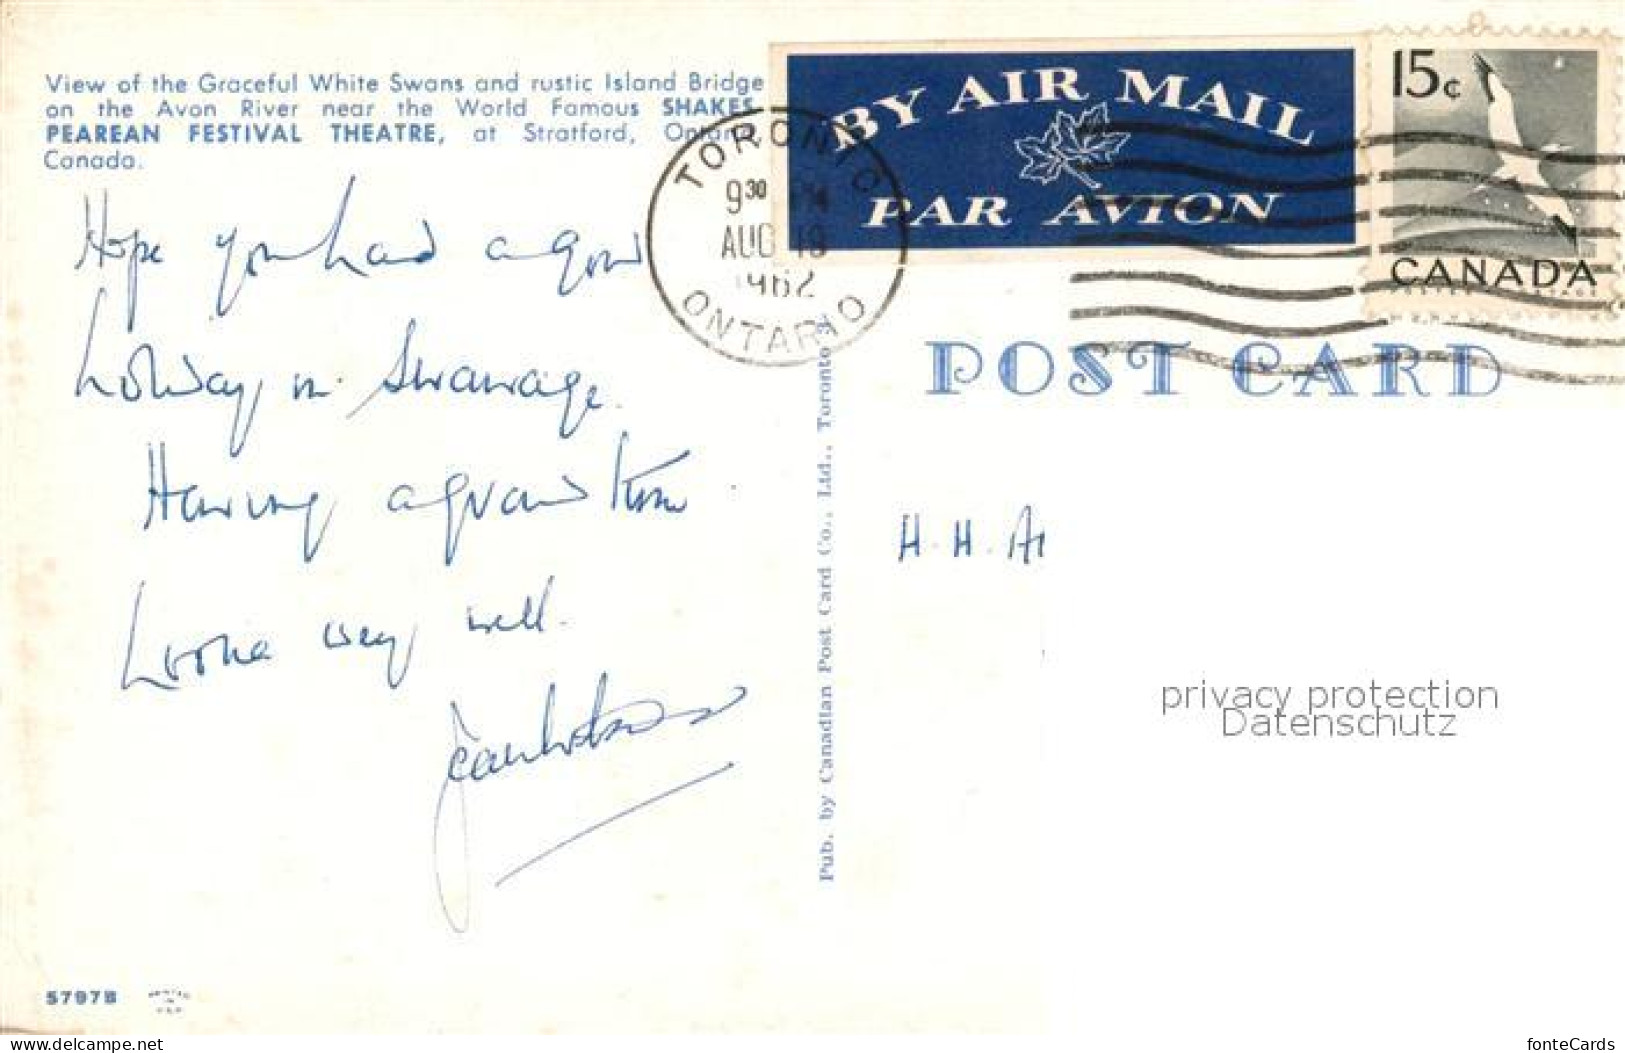 View of the Graceful White Swans and rustic Island Bridge
on the Avon River near the World Famous SHAKES-
PEAREAN FESTIVAL THEATRE, at Stratford, Ontario,
Canada.
Hope you had a good
holiday in Swanage.
Having a grand time
Lorna very well.
57978
TORONTO
9 30 PM
AUG
1962
ONTARIO
BY AIR MAIL
PAR AVION
15c
CANADA
POST CARD
Pub. by Canadian Post Card Co., Ltd., Toronto
H. H. A
privacy protection
Datenschutz
www.delcampe.net
fonteCards